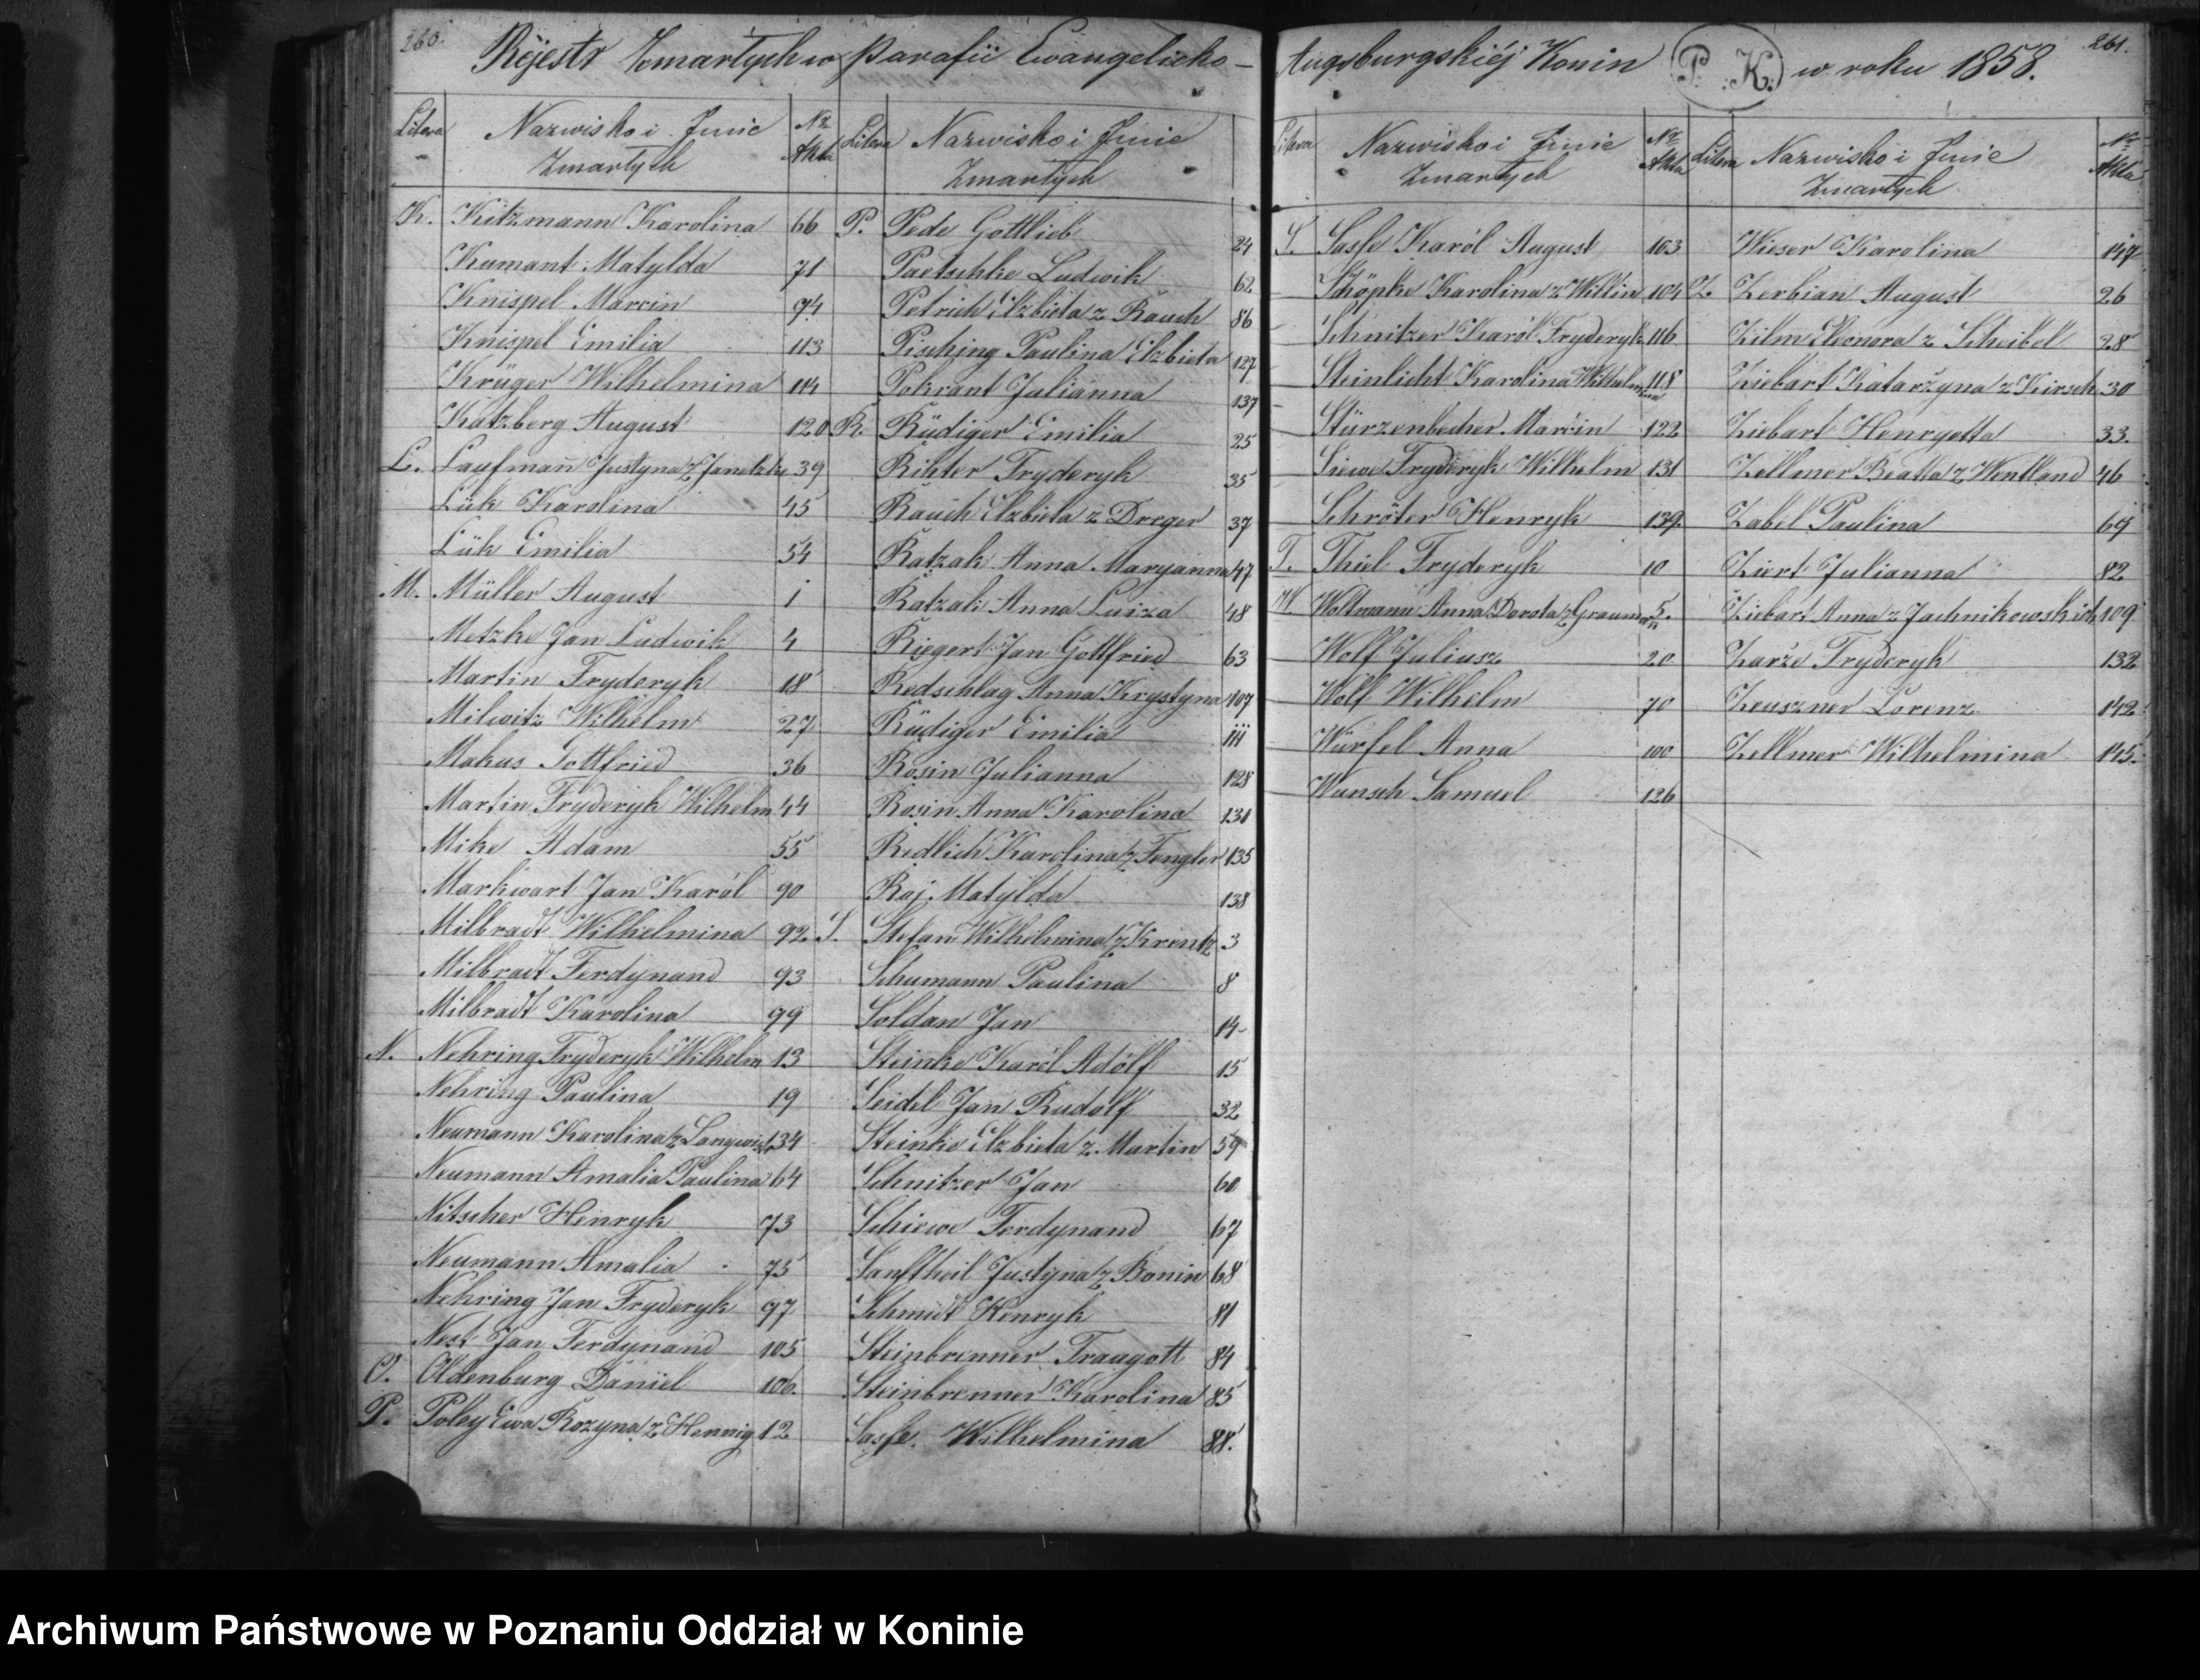 260.
Rejestr Zmarłych w Parafii Ewangelicko-
Litera Nazwisko i Imie Zmarłych Nr Akta Litera Nazwisko i Imie Zmarłych
K. Kitzmann Karolina 66
Kumant Matylda 71
Knispel Marcin 94
Knispel Emilia 113
Krüger Wilhelmina 114
Katzberg August 120
L. Laufmañ Justyna z Janetzke 39
Lük Karolina 45
Lük Emilia 54
M. Müller August 1
Metzke Jan Ludwik 4
Martin Fryderyk 18
Milwitz Wilhelm 27
Makus Gottfried 36
Martin Fryderyk Wilhelm 44
Mike Adam 55
Markwart Jan Karól 90
Milbradt Wilhelmina 92
Milbradt Ferdynand 93
Milbradt Karolina 99
N. Nehring Fryderyk Wilhelm 13
Nehring Paulina 19
Neumann Karolina z 134
Neumann Amalia Paulina 64
Nitscher Henryk 73
Neumann Amalia 75
Nehring Jan Fryderyk 97
Nest Jan Ferdynand 105
O. Oldenburg Daniel 106
P. Poley Ewa Rozyna z Hennig 12
P. Pede Gottlieb 24
Paetschke Ludwik 62
Petrich Elzbieta z Rauch 86
Pisching Paulina Elzbieta 127
Pokrant Julianna 137
R. Rüdiger Emilia 25
Rihter Fryderyk 35
Rauch Elzbieta z Dreger 37
Ratzak Anna Maryanna 47
Ratzak Anna Luiza 48
Riegert Jan Gottfried 63
Redschlag Anna Krystyna 107
Rüdiger Emilia 111
Rosin Julianna 128
Rosin Anna Karolina 130
Redlich Karolina z Fengler 135
Raj Matylda 138
S. Stefan Wilhelmina z Krentz 3
Schumann Paulina 8
Soldan Jan 14
Steinke Karól Adolf 15
Seidel Jan Rudolf 32
Steinke Elzbieta z Martin 59
Schnitzer Jan 60
Schiewe Ferdynand 67
Sanftheil Justyna z Bonin 68
Schmidt Henryk 81
Steinbrenner Traugott 84
Steinbrenner Karolina 85
Sasse Wilhelmina 88.
Augsburgskiéj Konin P. K. w roku 1858.
261.
Litera Nazwisko i Imie Zmarłych Nr Akta Litera Nazwisko i Imie Zmarłych Nr Akta
S. Sasse Karól August 103
Schöpke Karolina z Willin 104
Schnitzer Karól Fryderyk 116
Steinlicht Karolina Wilhelmina 118
Stürzenbecher Marcin 122
Siewe Fryderyk Wilhelm 131
Schröter Henryk 139.
T. Thiel Fryderyk 10
W. Woltmann Anna Dorota z Graumañ 5.
Wolf Juliusz 20
Wolf Wilhelm 70
Würfel Anna 100
Wunsch Samuel 126
Wieser Karolina 147
Z. Zerbian August 26
Zilm Eleonora z Scheibel 28
Ziebart Katarzyna z Kirsch 30
Ziebart Henryetta 33.
Zellmer Beatta z Wentland 46
Zabel Paulina 69
Ziert Julianna 82
Ziebart Anna z Jachnikowskich 109
Zarże Fryderyk 132
Zeuszner Lorenz 142
Zellmer Wilhelmina 145.
Archiwum Państwowe w Poznaniu Oddział w Koninie